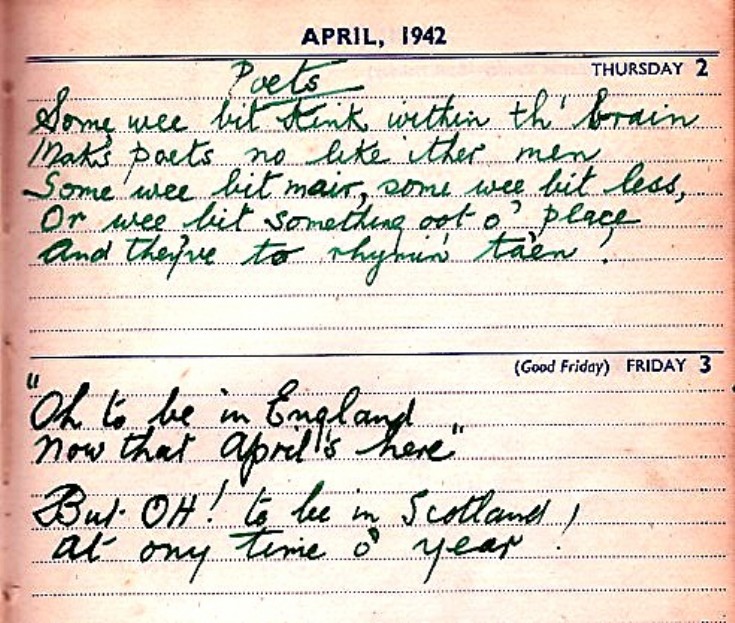 APRIL, 1942
THURSDAY 2
Poets
Some wee bit kink within th' brain
Maks poets no like ither men
Some wee bit mair, some wee bit less,
Or wee bit something oot o' place
And they've to rhymin' ta'en!
(Good Friday) FRIDAY 3
"Oh to be in England
Now that April's here"
But OH! to be in Scotland,
at ony time o' year!